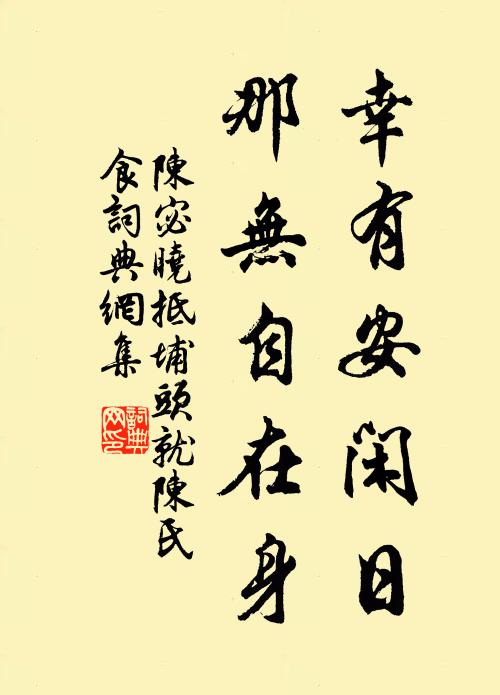 幸有安閑日
那無自在身
陳宓曉抵埔頭就陳氏
食詞典網集
詞典網印